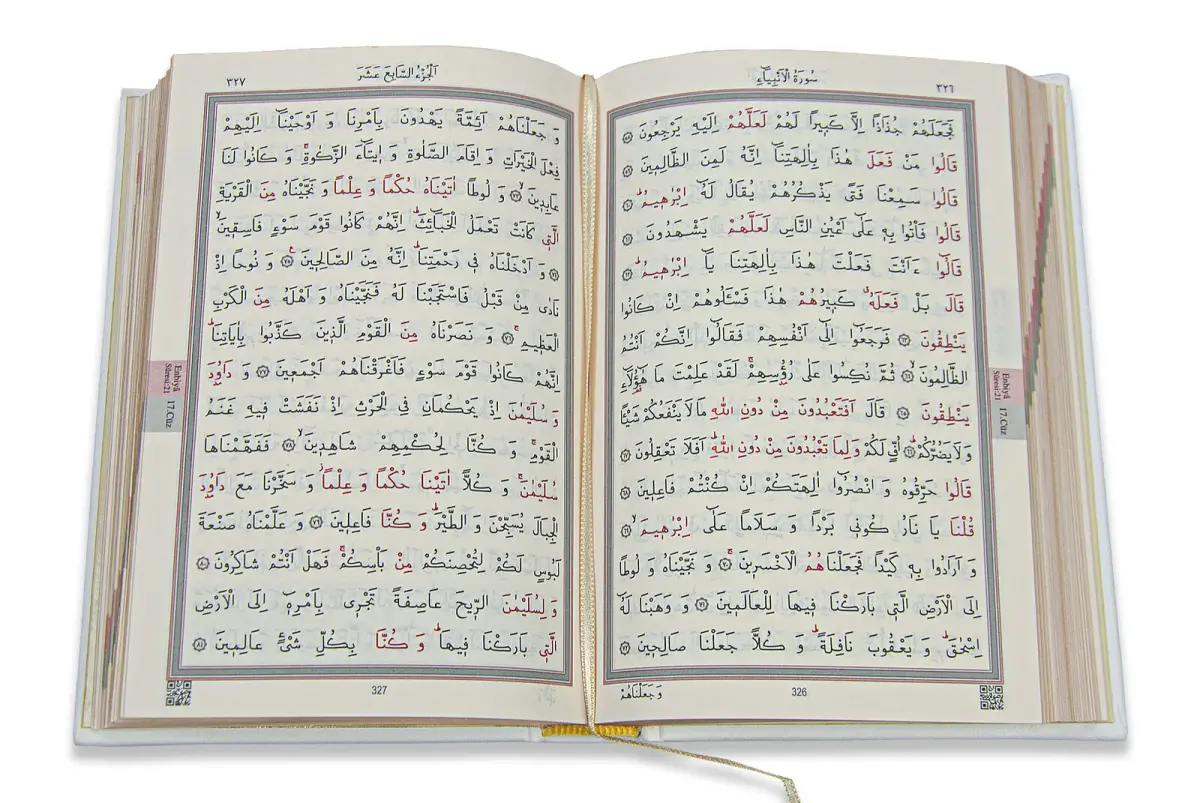 ٣٢٦
سُورَةُ الْاَنْبِيَٓاءِ
فَجَعَلَهُمْ جُذَاذًا اِلَّا كَبِيرًا لَهُمْ لَعَلَّهُمْ اِلَيْهِ يَرْجِعُونَ ﴿٥٨﴾
قَالُوا مَنْ فَعَلَ هٰذَا بِاٰلِهَتِنَٓا اِنَّهُ لَمِنَ الظَّالِمِينَ ﴿٥٩﴾
قَالُوا سَمِعْنَا فَتًى يَذْكُرُهُمْ يُقَالُ لَهُٓ اِبْرٰهِيمُۜ ﴿٦٠﴾
قَالُوا فَأْتُوا بِهِ عَلٰٓى اَعْيُنِ النَّاسِ لَعَلَّهُمْ يَشْهَدُونَ ﴿٦١﴾
قَالُٓوا ءَاَنْتَ فَعَلْتَ هٰذَا بِاٰلِهَتِنَا يَٓا اِبْرٰهِيمُۜ ﴿٦٢﴾
قَالَ بَلْ فَعَلَهُۗ كَبِيرُهُمْ هٰذَا فَسْـَٔلُوهُمْ اِنْ كَانُوا
يَنْطِقُونَ ﴿٦٣﴾ فَرَجَعُٓوا اِلٰٓى اَنْفُسِهِمْ فَقَالُٓوا اِنَّكُمْ اَنْتُمُ
الظَّالِمُونَۙ ﴿٦٤﴾ ثُمَّ نُكِسُوا عَلٰى رُؤُ۫سِهِمْۚ لَقَدْ عَلِمْتَ مَا هٰٓؤُ۬لَٓاءِ
يَنْطِقُونَ ﴿٦٥﴾ قَالَ اَفَتَعْبُدُونَ مِنْ دُونِ اللّٰهِ مَا لَا يَنْفَعُكُمْ شَيْـًٔا
وَلَا يَضُرُّكُمْۜ ﴿٦٦﴾ اُفٍّ لَكُمْ وَلِمَا تَعْبُدُونَ مِنْ دُونِ اللّٰهِۜ اَفَلَا تَعْقِلُونَ ﴿٦٧﴾
قَالُوا حَرِّقُوهُ وَ انْصُرُٓوا اٰلِهَتَكُمْ اِنْ كُنْتُمْ فَاعِلِينَ ﴿٦٨﴾
قُلْنَا يَا نَارُ كُونِي بَرْدًا وَ سَلَامًا عَلٰٓى اِبْرٰهِيمَۙ ﴿٦٩﴾
وَ اَرَادُوا بِهِ كَيْدًا فَجَعَلْنَاهُمُ الْاَخْسَرِينَۚ ﴿٧٠﴾ وَ نَجَّيْنَاهُ وَ لُوطًا
اِلَى الْاَرْضِ الَّتِي بَارَكْنَا فِيهَا لِلْعَالَمِينَ ﴿٧١﴾ وَ وَهَبْنَا لَهُٓ
اِسْحٰقَۜ وَ يَعْقُوبَ نَافِلَةًۜ وَ كُلًّا جَعَلْنَا صَالِحِينَ ﴿٧٢﴾
وَجَعَلْنَاهُمْ
326
Enbiyâ
Sûresi:21
17.Cüz
٣٢٧
اَلْجُزْءُ السَّابِعَ عَشَرَ
وَ جَعَلْنَاهُمْ اَئِمَّةً يَهْدُونَ بِاَمْرِنَا وَ اَوْحَيْنَٓا اِلَيْهِمْ
فِعْلَ الْخَيْرَاتِ وَ اِقَامَ الصَّلٰوةِ وَ اِيتَٓاءَ الزَّكٰوةِۚ وَ كَانُوا لَنَا
عَابِدِينَۙ ﴿٧٣﴾ وَ لُوطًا اٰتَيْنَاهُ حُكْمًا وَ عِلْمًا وَ نَجَّيْنَاهُ مِنَ الْقَرْيَةِ
الَّتِي كَانَتْ تَعْمَلُ الْخَبَٓائِثَۜ اِنَّهُمْ كَانُوا قَوْمَ سَوْءٍ فَاسِقِينَۙ
﴿٧٤﴾ وَ اَدْخَلْنَاهُ فِي رَحْمَتِنَاۜ اِنَّهُ مِنَ الصَّالِحِينَ۟ ﴿٧٥﴾ وَ نُوحًا اِذْ
نَادٰى مِنْ قَبْلُ فَاسْتَجَبْنَا لَهُ فَنَجَّيْنَاهُ وَ اَهْلَهُ مِنَ الْكَرْبِ
الْعَظِيمِۚ ﴿٧٦﴾ وَ نَصَرْنَاهُ مِنَ الْقَوْمِ الَّذِينَ كَذَّبُوا بِاٰيَاتِنَاۜ
اِنَّهُمْ كَانُوا قَوْمَ سَوْءٍ فَاَغْرَقْنَاهُمْ اَجْمَعِينَ ﴿٧٧﴾ وَ دَاوُ۫دَ
وَ سُلَيْمٰنَ اِذْ يَحْكُمَانِ فِي الْحَرْثِ اِذْ نَفَشَتْ فِيهِ غَنَمُ
الْقَوْمِۚ وَ كُنَّا لِحُكْمِهِمْ شَاهِدِينَۙ ﴿٧٨﴾ فَفَهَّمْنَاهَا
سُلَيْمٰنَۚ وَ كُلًّا اٰتَيْنَا حُكْمًا وَ عِلْمًاۘ وَ سَخَّرْنَا مَعَ دَاوُ۫دَ
الْجِبَالَ يُسَبِّحْنَ وَ الطَّيْرَۜ وَ كُنَّا فَاعِلِينَ ﴿٧٩﴾ وَ عَلَّمْنَاهُ صَنْعَةَ
لَبُوسٍ لَكُمْ لِتُحْصِنَكُمْ مِنْ بَأْسِكُمْۚ فَهَلْ اَنْتُمْ شَاكِرُونَ ﴿٨٠﴾
وَ لِسُلَيْمٰنَ الرِّيحَ عَاصِفَةً تَجْرِي بِاَمْرِهِٓ اِلَى الْاَرْضِ
الَّتِي بَارَكْنَا فِيهَاۜ وَ كُنَّا بِكُلِّ شَيْءٍ عَالِمِينَ ﴿٨١﴾
327
Enbiyâ
Sûresi:21
17.Cüz